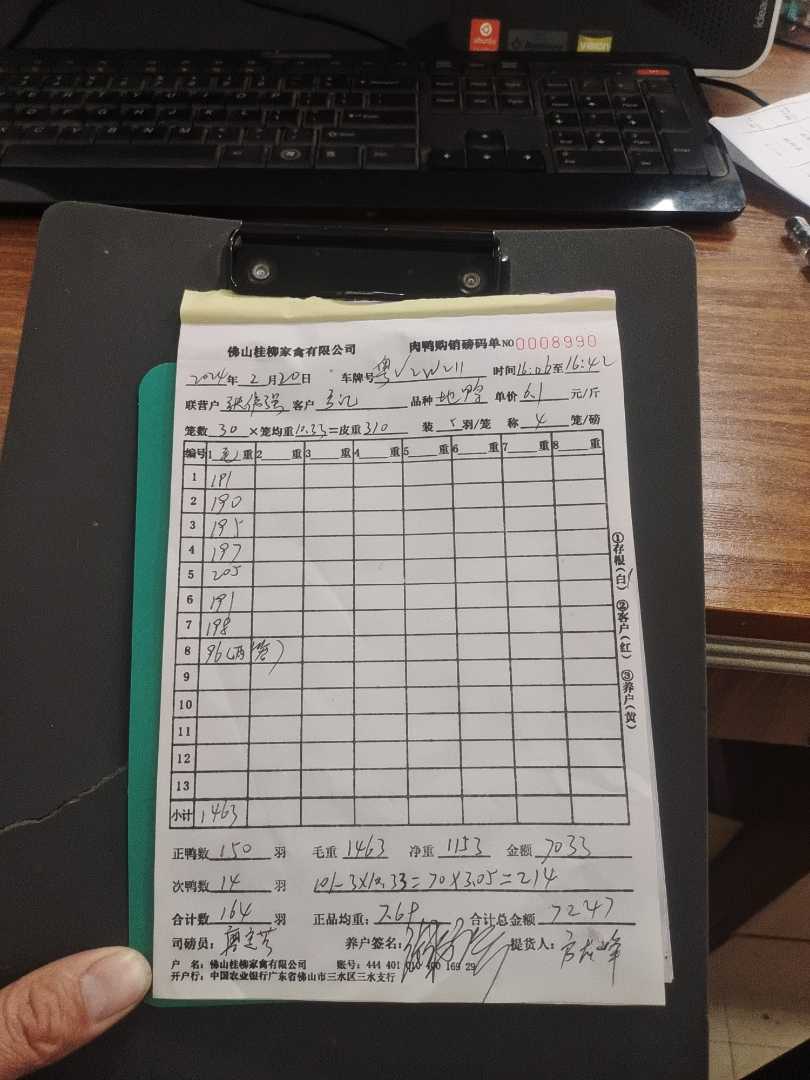 ubuntu
vision
佛山桂柳家禽有限公司 肉鸭购销磅码单 NO 0008990
2024年 2月20日 车牌号 粤V2W211 时间16:06至16:42
联营户 客户 品种 地鸭 单价 6.1 元/斤
笼数 30 ×笼均重10.33=皮重310 装 5 羽/笼 称 4 笼/磅
编号 1 毛 重 2 重 3 重 4 重 5 重 6 重 7 重 8 重
1 191
2 190
3 195
4 197
5 205
6 191
7 198
8 96(两笼)
9
10
11
12
13
小计 1463
正鸭数 150 羽 毛重 1463 净重 1153 金额 7033
次鸭数 14 羽 101-3×10.33=70×3.05=214
合计数 164 羽 正品均重: 7.69 合计总金额 7247
司磅员: 养户签名: 提货人:
户 名: 佛山桂柳家禽有限公司 账号: 444 401 010 400 169 29
开户行: 中国农业银行广东省佛山市三水区三水支行
①存根(白) ②客户(红) ③养户(黄)